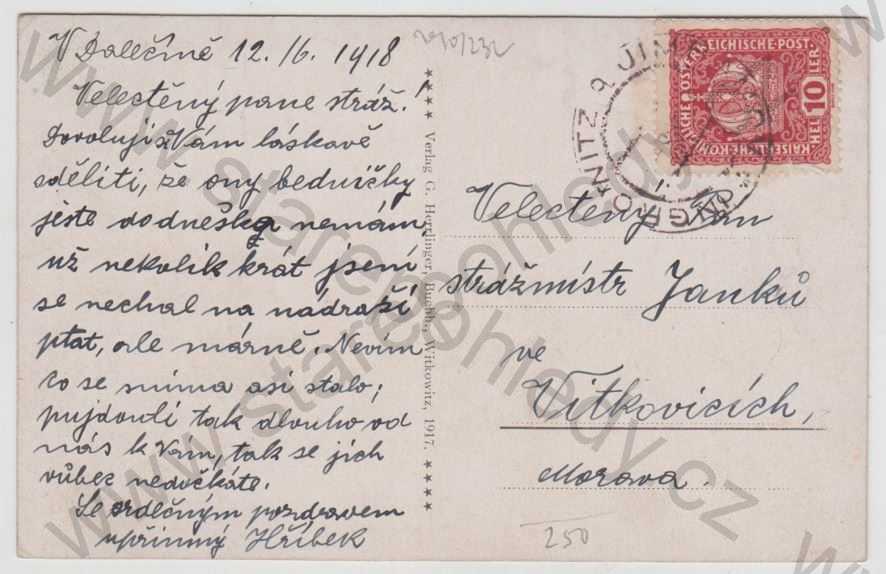 V Dalečíně 12./6. 1918
Velectěný pane stráž.!
Dovoluji si Vám láskavě
sděliti, že ony bedničky
ješte do dneška nemám,
už nekolik krát jsem
se nechal na nádraží
ptat, ale márně. Nevím
co se s nima asi stalo;
pujdouli tak dlouho od
nás k Vám, tak se jich
vůbec nedočkáte.
Se srdečným pozdravem
upřímný Hříbek
2910/232
★★★★ Verlag G. Herrlinger, Buchh., Witkowitz, 1917. ★★★★
KAISERLICHE KÖNIGLICHE ÖSTERREICHISCHE POST
10
HELLER
Velectěný Pan
strážmistr Janků
ve
Vítkovicích,
Morava.
250
www.stareomohledy.cz